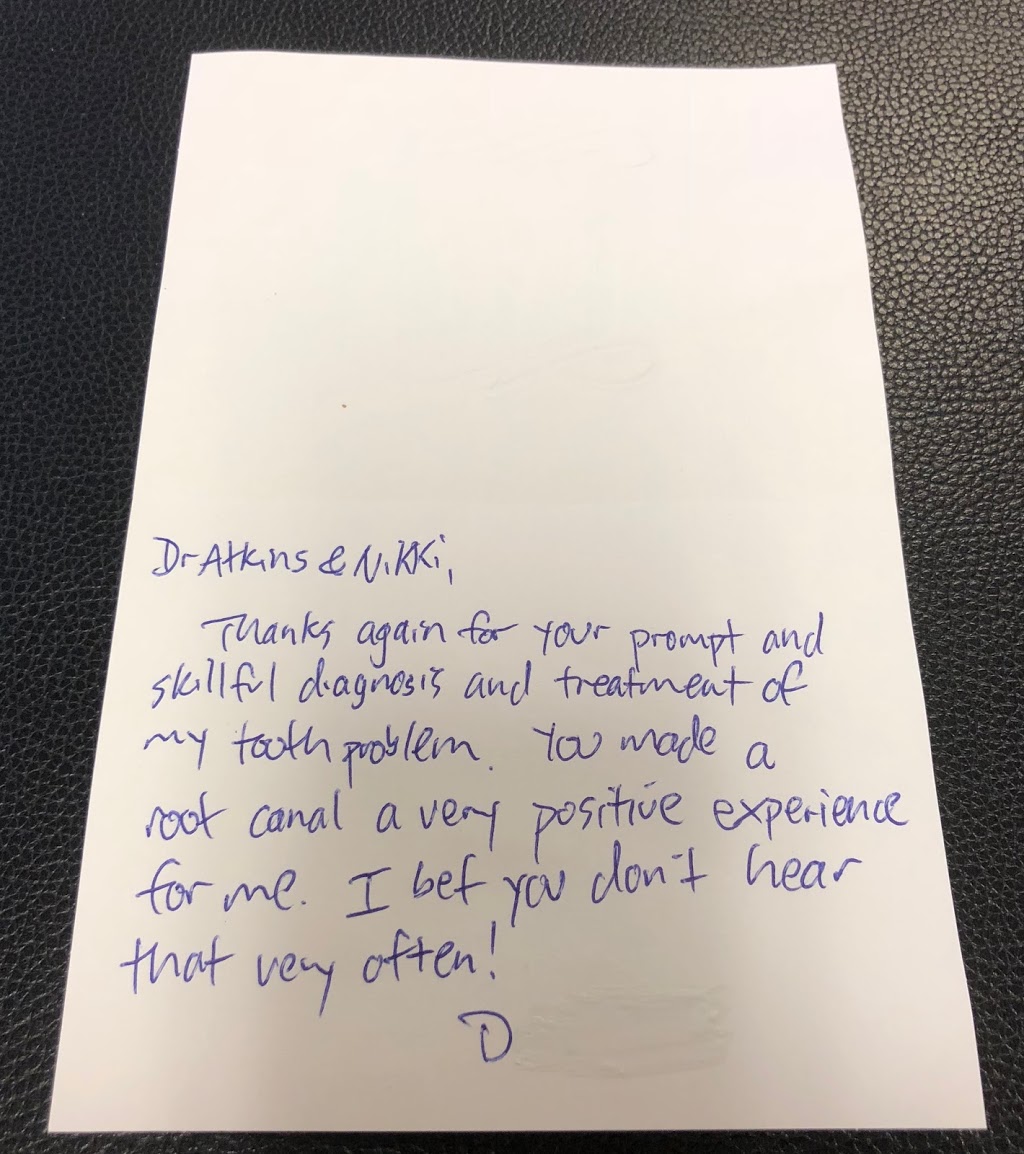 Dr Atkins & Nikki,
Thanks again for your prompt and
skillful diagnosis and treatment of
my tooth problem. You made a
root canal a very positive experience
for me. I bet you don't hear
that very often!
D